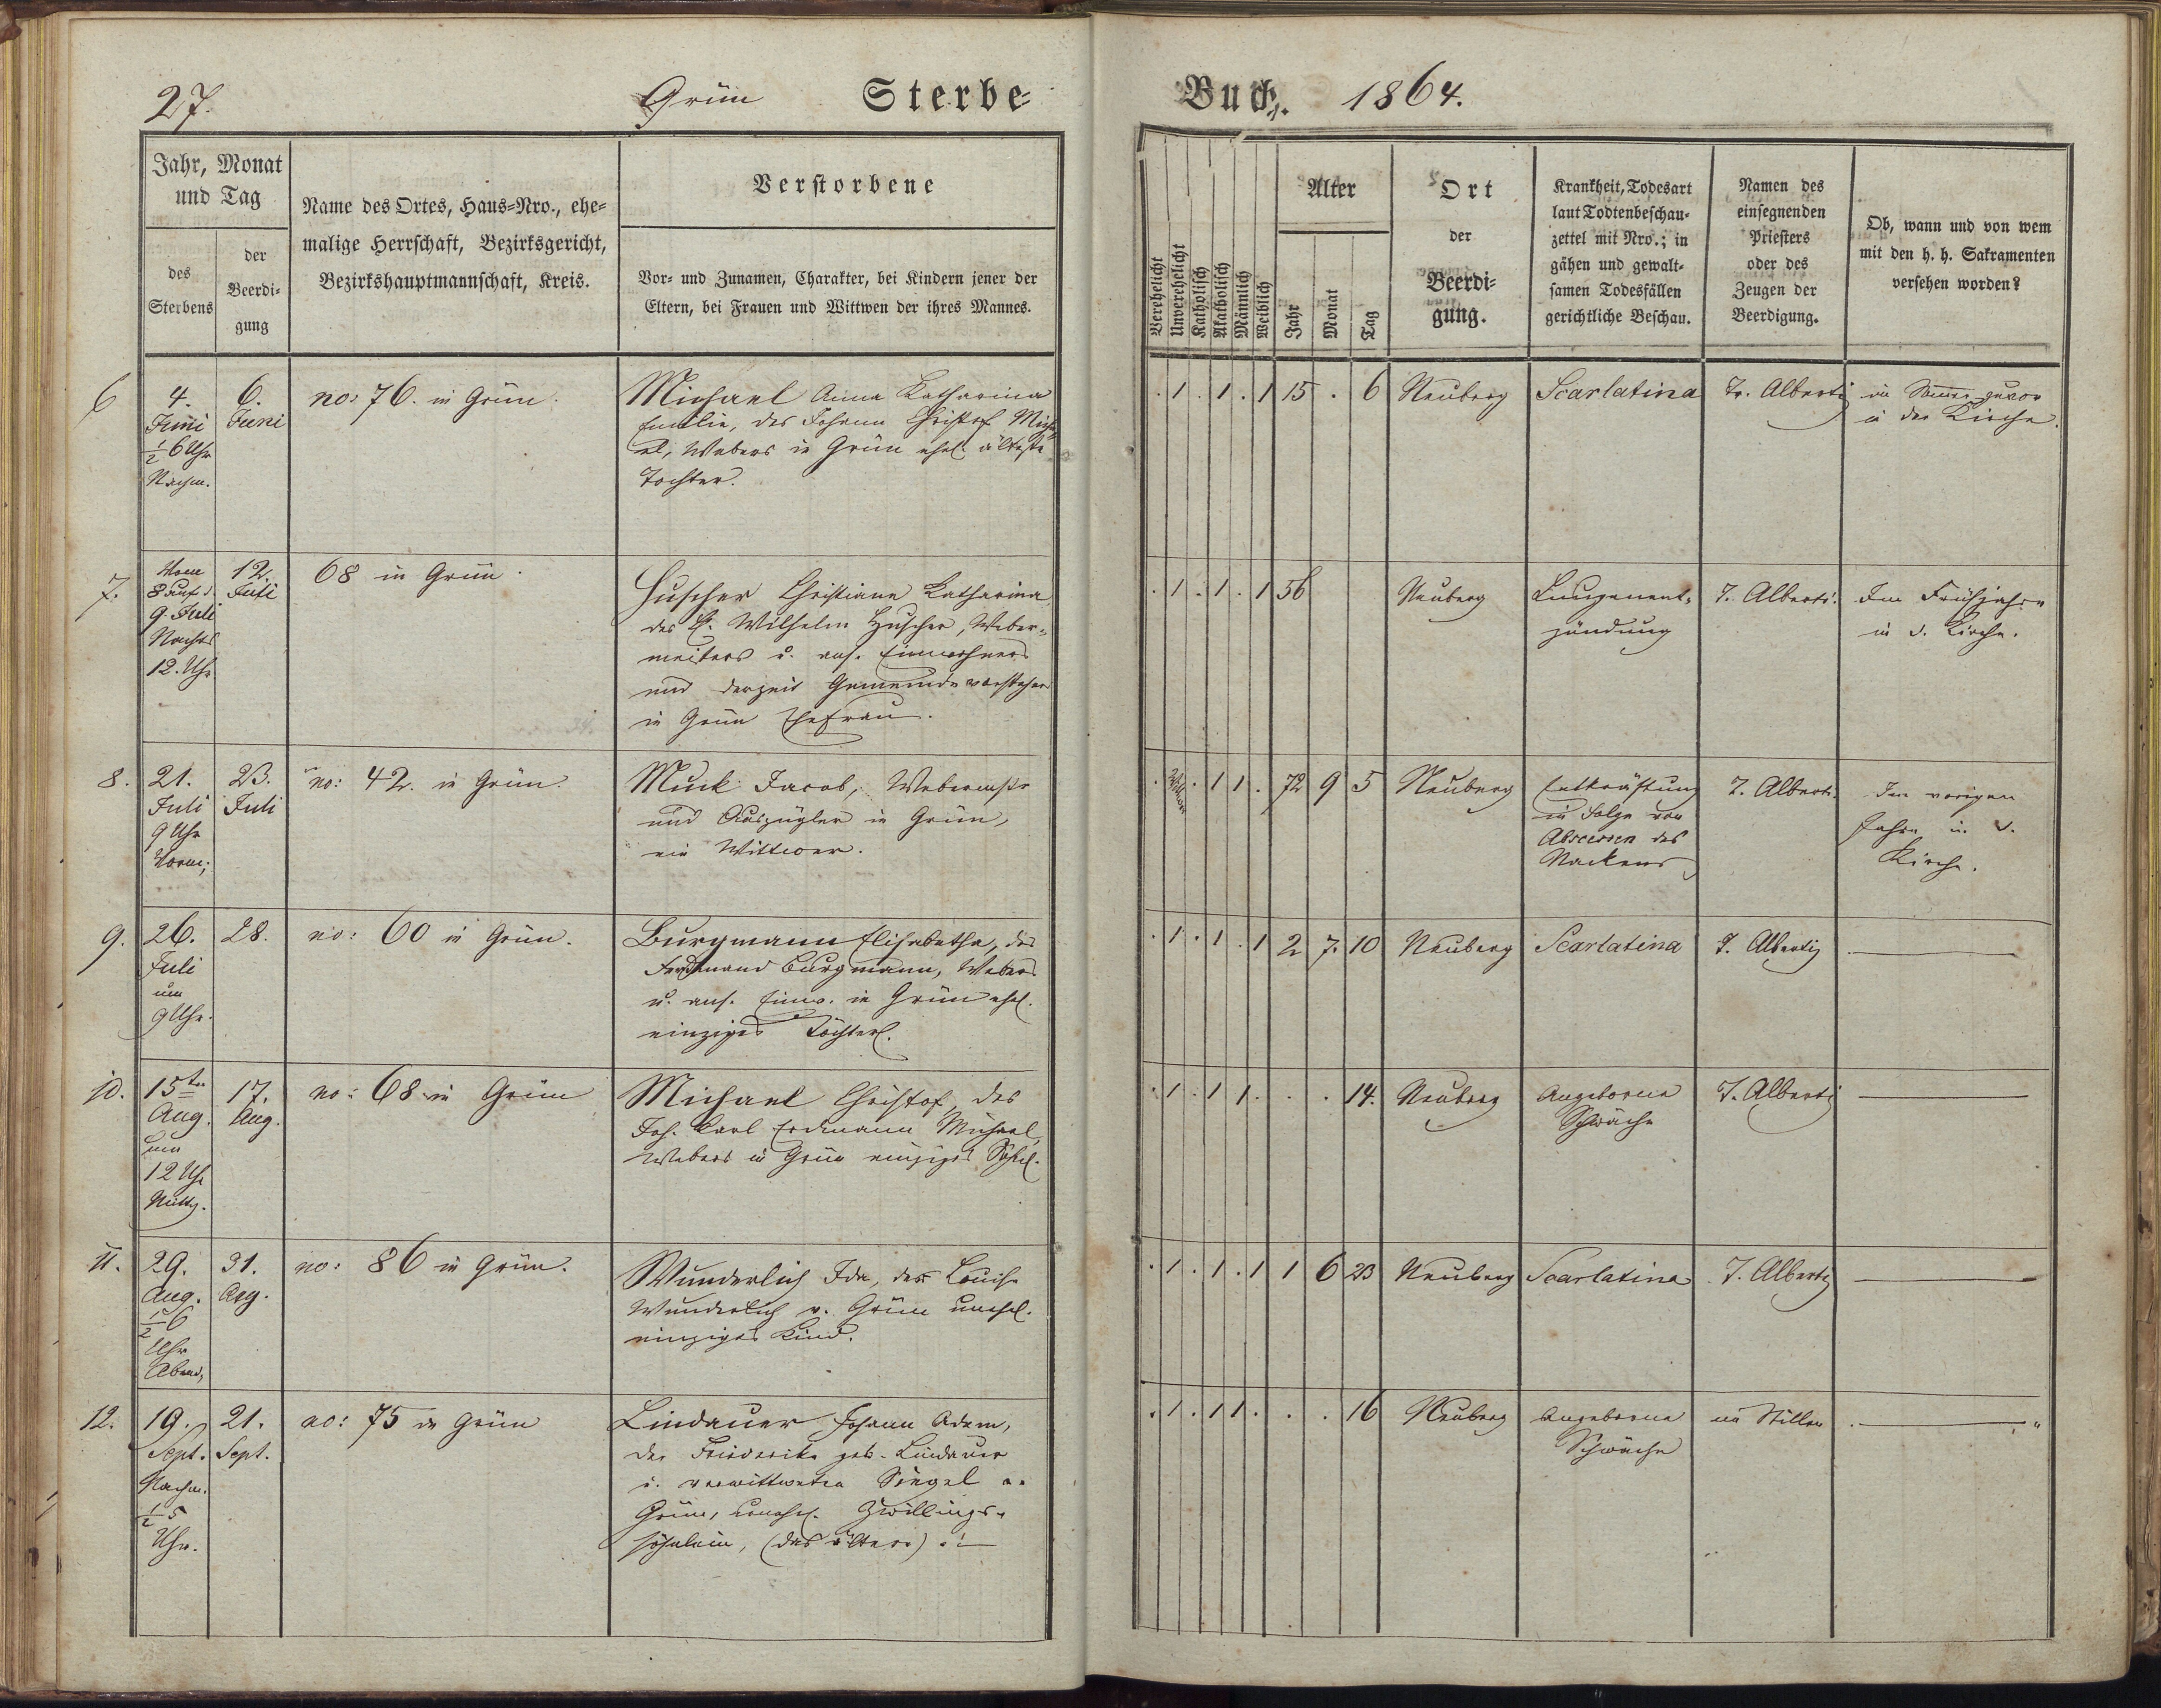 27.
Grün
Sterbe-
Buch.
1864.
Jahr, Monat
und Tag
des
Sterbens
der
Beerdi-
gung
Name des Ortes, Haus-Nro., ehe-
malige Herrschaft, Bezirksgericht,
Bezirkshauptmannschaft, Kreis.
Verstorbene
Vor- und Zunamen, Charakter, bei Kindern jener der
Eltern, bei Frauen und Wittwen der ihres Mannes.
Verehelicht
Unverehelicht
Katholisch
Akatholisch
Männlich
Weiblich
Alter
Jahr
Monat
Tag
Ort
der
Beerdi-
gung.
Krankheit, Todesart
laut Todtenbeschau-
zettel mit Nro.; in
gähen und gewalt-
samen Todesfällen
gerichtliche Beschau.
Namen des
einsegnenden
Priesters
oder des
Zeugen der
Beerdigung.
Ob, wann und von wem
mit den h. h. Sakramenten
versehen worden?
6
4.
Juni
½ 6 Uhr
Nachm.
6.
Juni
no: 76. in Grün.
Michael Anna Katharina
Emilie, des Johann Christof Micha
el, Webers in Grün ehel. älteste
Tochter.
. 1 . 1 . 1 15 . 6
Neuberg
Scarlatina
Tr. Alberti
im zuvor
in der Kirche.
7.
Vom
8 auf d.
9. Juli
Nachts
12. Uhr
12.
Juli
68 in Grün.
Huscher Christiane Katharina
des Wilhelm Huscher, Weber-
meisters u. ans. Einwohners
und derzeit Gemeindevorsteher
in Grün Ehefrau.
. 1 . 1 . 1 56
Neuberg
Lungenent-
zündung
T. Alberti.
Im Frühjahre
in d. Kirche.
8.
21.
Juli
9 Uhr
Vorm;
23.
Juli
no: 42. in Grün.
Muck Jacob, Webermstr
und Auszügler in Grün,
ein Wittwer.
. Wittwer . 1 1 . 72 9 5
Neuberg
Entkräftung
in Folge von
Abscessen des
Nackens
T. Alberti.
Im vorigen
Jahre in d.
Kirche.
9.
26.
Juli
um
9 Uhr.
28.
no: 60 in Grün.
Burgmann Elisabetha, des
Ferdinand Burgmann, Webers
u. ans. Einw. in Grün ehel.
einziges Töchterl.
. 1 . 1 . 1 2 7. 10
Neuberg
Scarlatina
T. Alberti
10.
15ten
Aug.
um
12 Uhr
Mittg.
17.
Aug.
no: 68 in Grün
Michael Christof, des
Joh. Karl Erdmann Michael,
Webers in Grün einziges Söhnl.
. 1 . 1 1 . . . 14.
Neuberg
Angeborene
Schwäche
T. Alberti
11.
29.
Aug.
½ 6
Uhr
Abend,
31.
Aug.
no: 86 in Grün.
Wunderlich Ida, der Louise
Wunderlich v. Grün unehel.
einziges Kind.
. 1 . 1 . 1 1 6 23
Neuberg
Scarlatina
T. Alberti
12.
19.
Sept.
Nachm.
½ 5
Uhr.
21.
Sept.
no: 75 in Grün
Lindauer Johann Adam,
der Friederike geb. Lindauer
u. verwittweten Singel a.
Grün, unehel. Zwillings-
söhnlein, (das ältere)
. 1 . 1 1 . . . 16
Neuberg
Angeborene
Schwäche
im Stillen